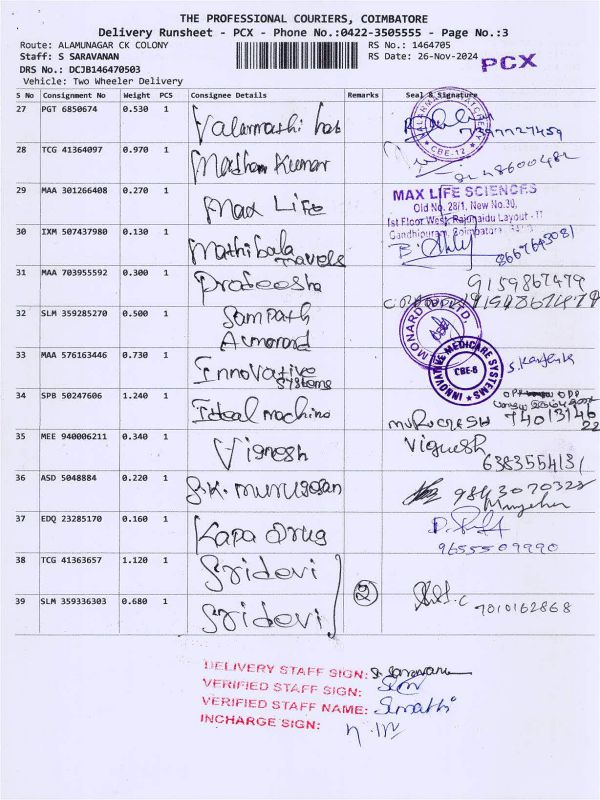 THE PROFESSIONAL COURIERS, COIMBATORE
Delivery Runsheet - PCX - Phone No.:0422-3505555 - Page No.:3
Route: ALAMUNAGAR CK COLONY
RS No.: 1464705
Staff: S SARAVANAN
RS Date: 26-Nov-2024
PCX
DRS No.: DCJB146470503
Vehicle: Two Wheeler Delivery
S No Consignment No Weight PCS Consignee Details Remarks Seal & Signature
27 PGT 6850674 0.530 1 Valarmathi
28 TCG 41364097 0.970 1 Madhan Kumar
29 MAA 301266408 0.270 1 Max Life
MAX LIFE SCIENCES
Old No. 28/1, New No.30,
1st Floor West Rajunaidu Layout
Gandhipuram, Coimbatore
30 IXM 507437980 0.130 1 Mathibala Travels
8667643081
31 MAA 703955592 0.300 1 Pradeesha
9159867479
32 SLM 359285270 0.500 1 Sampath
33 MAA 576163446 0.730 1 Innovative Systems
INNOVATIVE MEDICARE SYSTEMS
CBE-6
34 SPB 50247606 1.240 1 Ideal machine
35 MEE 940006211 0.340 1 Vignesh
Viguesh
36 ASD 5048884 0.220 1 S.K. Murugesan
37 EDQ 23285170 0.160 1 Kapa Drug
9655509990
38 TCG 41363657 1.120 1 Sridevi
2
39 SLM 359336303 0.680 1 Sridevi
7010162868
DELIVERY STAFF SIGN:
VERIFIED STAFF SIGN:
VERIFIED STAFF NAME: Sumathi
INCHARGE SIGN: